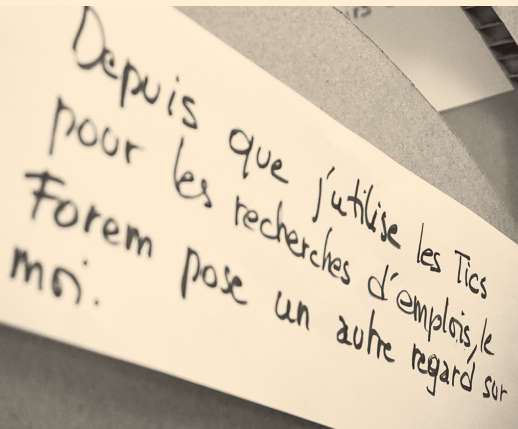 Depuis que j'utilise les Tics
pour les recherches d'emplois, le
Forem pose un autre regard sur
moi.